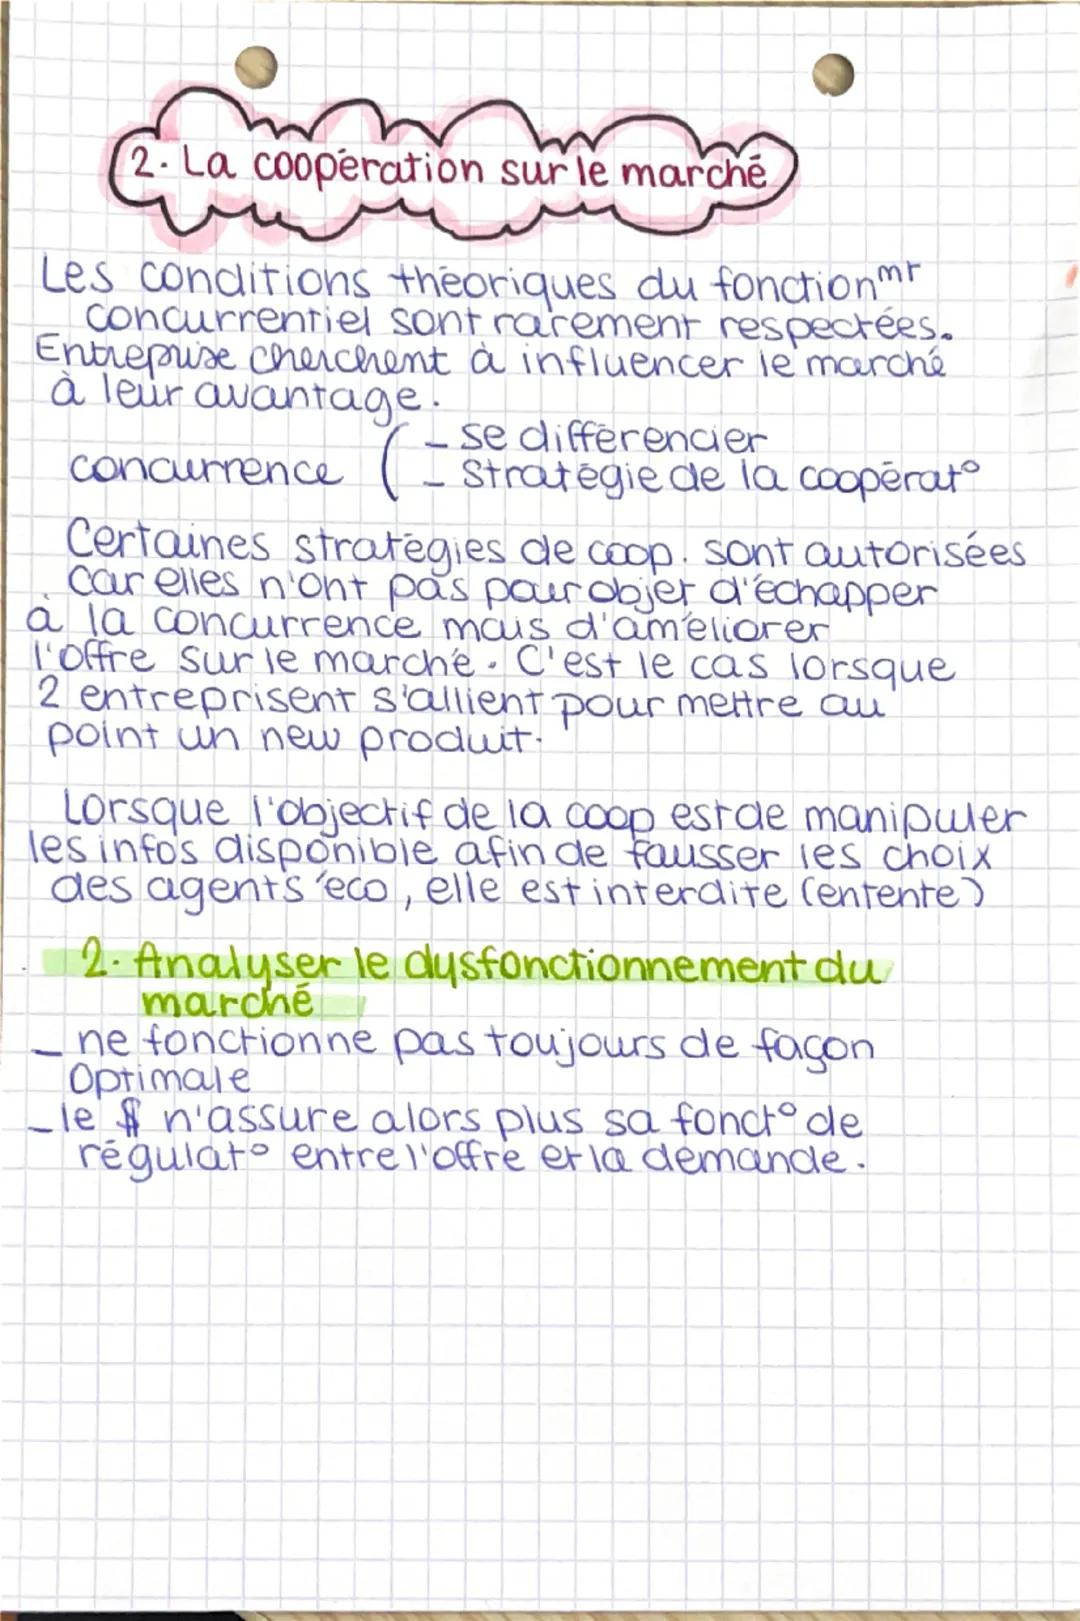 2. La coopération sur le marché
Les conditions théoriques du fonction^mt
concurrentiel sont rarement respectées.
Entreprise cherchent à influencer le marché
à leur avantage.
concurrence ( - se différencier
- Stratégie de la coopérat°
Certaines stratégies de coop. sont autorisées
car elles n'ont pas pour objet d'échapper
à la concurrence mais d'améliorer
l'offre sur le marché. C'est le cas lorsque
2 entreprisent s'allient pour mettre au
point un new produit.
Lorsque l'objectif de la coop est de manipuler
les infos disponible afin de fausser les choix
des agents éco, elle est interdite (entente)
2. Analyser le dysfonctionnement du
marché
- ne fonctionne pas toujours de façon
Optimale
- le $ n'assure alors plus sa fonct° de
régulat° entre l'offre et la demande.